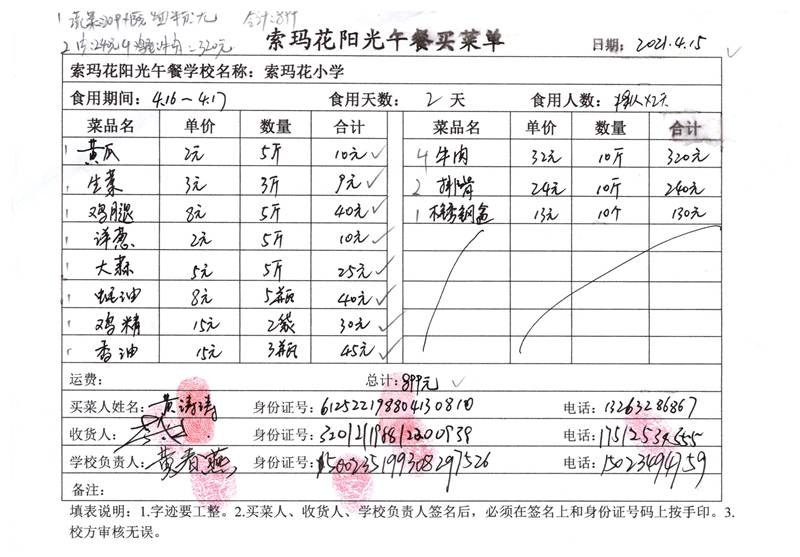 合计:899
索玛花阳光午餐买菜单 日期: 2021.4.15
索玛花阳光午餐学校名称: 索玛花小学
食用期间: 4.16~4.17 食用天数: 2 天 食用人数:
菜品名 单价 数量 合计 菜品名 单价 数量 合计
黄瓜 2元 5斤 10元 4 牛肉 32元 10斤 320元
生菜 3元 3斤 9元 2 24元 10斤 240元
鸡腿 8元 5斤 40元 1 不锈钢盒 13元 10个 130元
洋葱 2元 5斤 10元
大蒜 5元 5斤 25元
蚝油 8元 5瓶 40元
鸡精 15元 2袋 30元
香油 15元 3瓶 45元
运费: 总计: 899元
买菜人姓名: 黄涛涛 身份证号: 电话: 13263286867
收货人: 身份证号: 电话:
学校负责人: 黄春燕 身份证号: 电话: 15023494759
备注:
填表说明: 1.字迹要工整。2.买菜人、收货人、学校负责人签名后，必须在签名上和身份证号码上按手印。3.
校方审核无误。